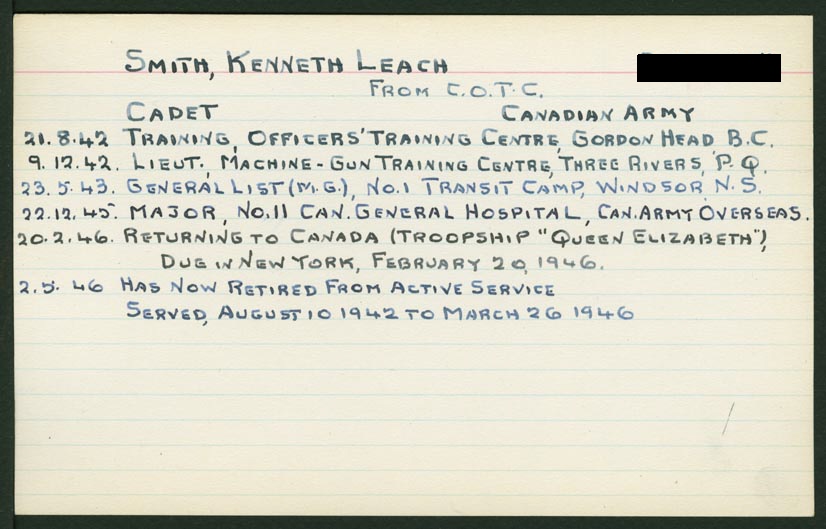 SMITH, KENNETH LEACH
FROM C.O.T.C.
CADET CANADIAN ARMY
21.8.42 TRAINING, OFFICERS' TRAINING CENTRE, GORDON HEAD, B.C.
9.12.42. LIEUT., MACHINE-GUN TRAINING CENTRE, THREE RIVERS, P.Q.
23.5.43. GENERAL LIST (M.G.), NO.1 TRANSIT CAMP, WINDSOR N.S.
22.12.45. MAJOR, NO.11 CAN. GENERAL HOSPITAL, CAN. ARMY OVERSEAS.
20.2.46. RETURNING TO CANADA (TROOPSHIP "QUEEN ELIZABETH"),
DUE IN NEW YORK, FEBRUARY 20, 1946.
2.5.46 HAS NOW RETIRED FROM ACTIVE SERVICE
SERVED, AUGUST 10 1942 TO MARCH 26 1946